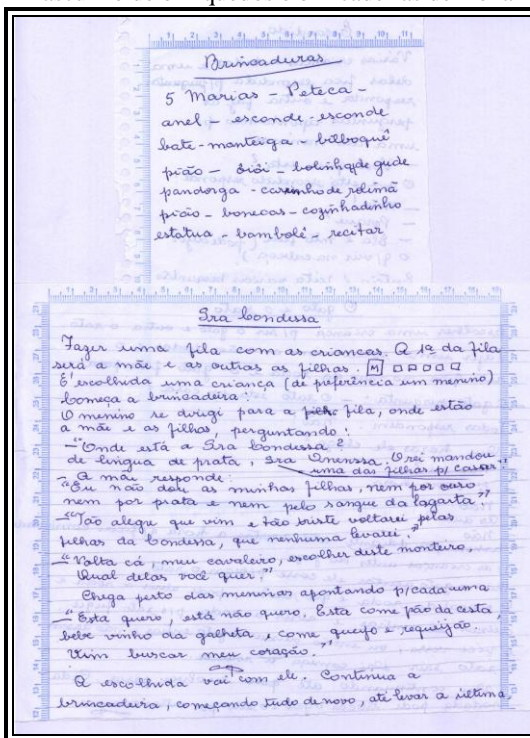 Brincadeiras
5 Marias - Peteca -
anel - esconde-esconde
bate-manteiga - bilboquê
pião - bolinha de gude
pandorga - carrinho de rolimã
pião - bonecas - cozinhadinho
estatua - bambolê - recitar
Sra Condessa
Fazer uma fila com as crianças. A 1ª da fila
será a mãe e as outras as filhas. M
É escolhida uma criança (de preferência um menino)
Começa a brincadeira:
O menino se dirigi para a fila, onde estão
a mãe e as filhas, perguntando:
- "Onde está a Sra Condessa?
de língua de prata, Sra O rei mandou
uma das filhas p/ casar"
- A mãe responde:
"Eu não dou as minhas filhas, nem por ouro
nem por prata e nem pelo sangue da lagarta"
- "Tão alegre que vim e tão triste voltarei, pelas
filhas da Condessa, que nenhuma levarei."
- "Volta cá, meu cavaleiro, escolher deste monteiro,
Qual delas você quer."
Chega perto das meninas apontando p/ cada uma
- "Esta quero, está não quero. Esta come pão da cesta,
bebe vinho da galheta, come queijo e requeijão.
Vim buscar meu coração."
A escolhida vai com ele. Continua a
brincadeira, começando tudo de novo, até levar a última.